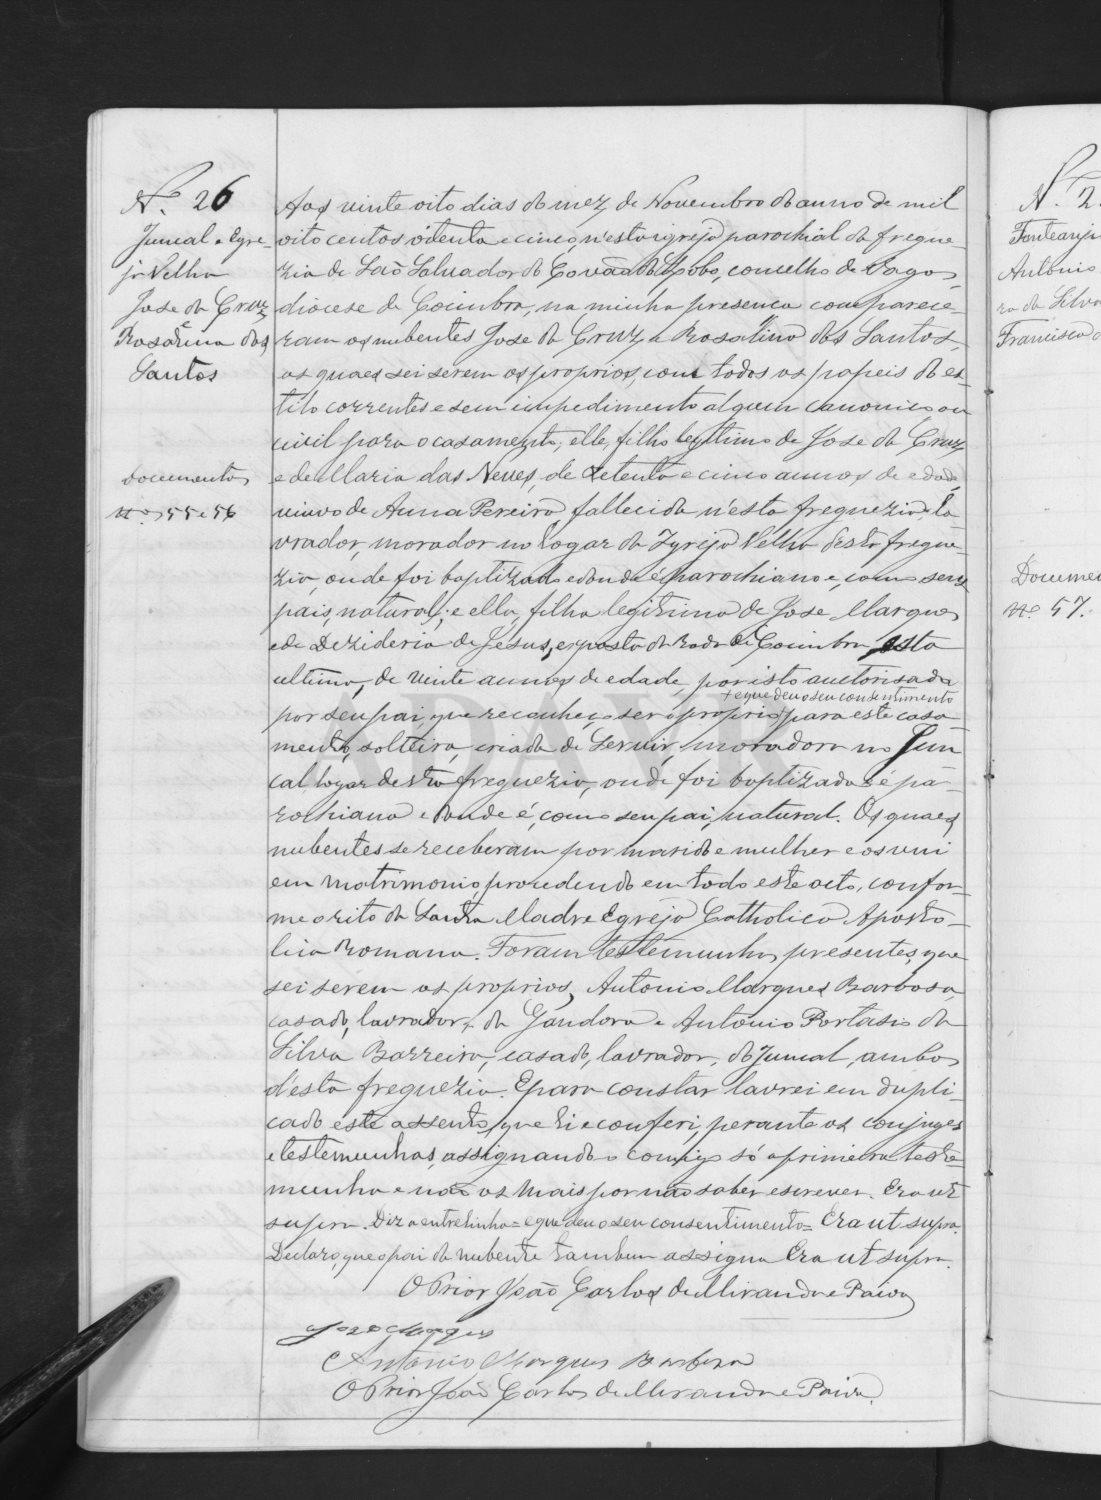 N.º 26
Juncal e Egre-
ja Velha
Jose da Cruz
Rosalina dos
Santos
Documentos
N.os 55 e 56
Aos vinte oito dias do mez de Novembro do anno de mil
oito centos oitenta e cinco n'esta igreja parochial da fregue-
zia de São Salvador do Covão do Lobo, concelho de Vagos,
diocese de Coimbra, na minha presença comparece-
ram os nubentes Jose da Cruz e Rosalina dos Santos,
os quaes sei serem os proprios, com todos os papeis do es-
tilo correntes e sem impedimento algum canonico ou
civil para o casamento, elle, filho legitimo de Jose da Cruz
e de Maria das Neves, de setenta e cinco annos de edade,
viuvo de Anna Pereira fallecida n'esta freguezia, la-
vrador, morador no logar da Igreja Velha desta fregue-
zia, onde foi baptizado e donde é parochiano e, como seus
pais, natural; e ella, filha legitima de Jose Marques
e de Dezideria de Jesus, exposta da roda de Coimbra, esta
ultima, de vinte annos de edade, por isto auctorisada
+ e que deu o seu consentimento
por seu pai, que reconheço ser o proprio, para este casa-
mento, solteira, criada de servir, moradora no Jun-
cal, logar desta freguezia, onde foi baptizada e é pa-
rochiana e donde é, como seu pai, natural. Os quaes
nubentes se receberam por marido e mulher e os uni
em matrimonio, procedendo em todo este acto, confor-
me o rito da Santa Madre Egreja Catholica Aposto-
lica Romana. Foram testemunhas presentes, que
sei serem os proprios, Antonio Marques Barbosa,
casado, lavrador, da Gandara e Antonio
Silva Barreira, casado, lavrador, do Juncal, ambos
d'esta freguezia. E para constar lavrei em dupli-
cado este assento, que li e conferi, perante os conjuges
e testemunhas, assignando comigo só a primeira teste-
munha e não os mais por não saber escrever. Era ut
supra. Diz a entrelinha = e que deu o seu consentimento = Era ut supra.
Declaro, que o pai da nubente tambem assigna Era ut supra.
O Prior João Carlos de Miranda e Paiva
Jose Marques
Antonio Marques Barbosa
O Prior João Carlos de Miranda e Paiva.
N.º 2
Antonio
ra da Silva
Francisca d
Documen
N.º 57.